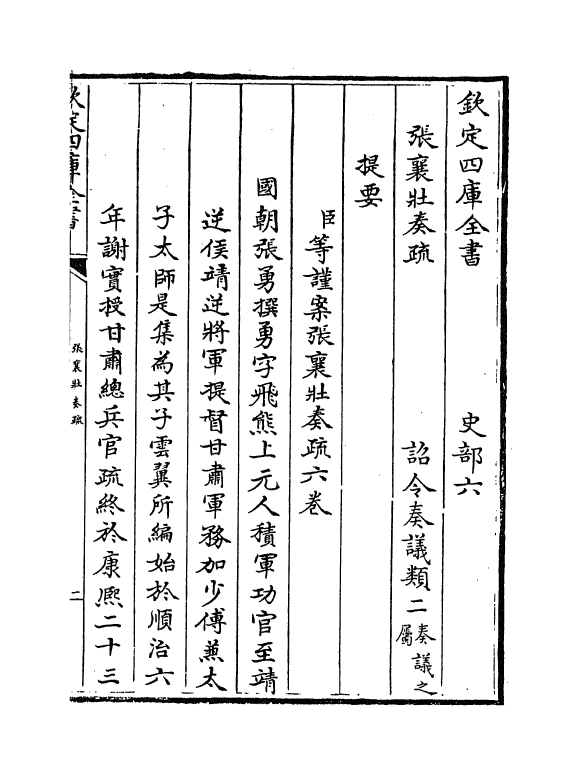 欽定四庫全書　史部六
張襄壯奏疏　詔令奏議類二奏議之屬
提要
臣等謹案張襄壯奏疏六卷
國朝張勇撰勇字飛熊上元人積軍功官至靖
逆侯靖逆將軍提督甘肅軍務加少傅兼太
子太師是集為其子雲翼所編始於順治六
年謝實授甘肅總兵官疏終於康熙二十三
欽定四庫全書
張襄壯奏疏
二